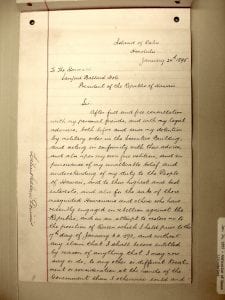 Island of Oahu
Honolulu
January 24th 1895
To The Honorable
Sanford Ballard Dole
President of the Republic of Hawaii
Sir:
After full and free consultation
with my personal friends and with my legal
advisers, both before and since my detention
by military order in the Executive Building,
and acting in conformity with their advice,
and also upon my own free volition, and in
pursuance of my unalterable belief and
understanding of my duty to the People
of Hawaii, and to their highest and best
interests, and also for the sake of those
misguided Hawaiians and others who have
recently engaged in rebellion against the
Republic, and in an attempt to restore me to
the position of Queen which I held prior to the
17th day of January A.D. 1893, and without
any claim that I shall become entitled
by reason of anything that I may now
say or do, to any other or different treat-
ment or consideration at the hands of the
Government than I otherwise could and